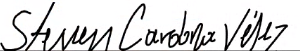 Steven Cardona Vélez